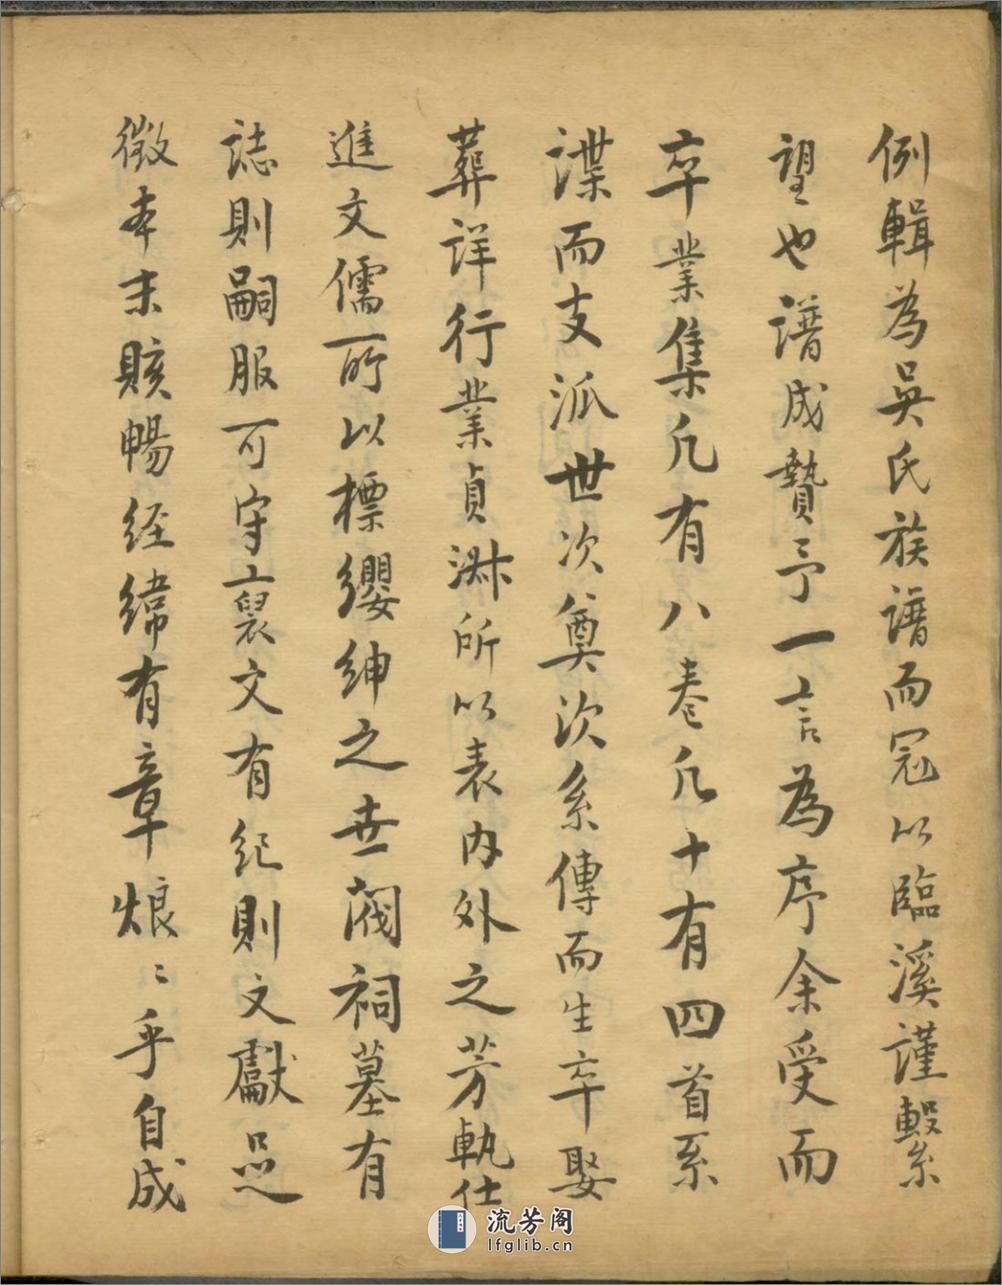 例輯為吳氏族譜而冠以臨溪謹繫
望也譜成贄予一言為序余受而
卒業集凡有八卷凡十有四首系
諜而支派世次奠次系傳而生卒娶
葬詳行業貞淑所以表內外之芳軌仕
進文儒所以標纓紳之世閥祠墓有
誌則嗣服可守裒文有紀則文獻足
徵本末賅暢経緯有章烺〻乎自成
流芳阁
lfglib.cn